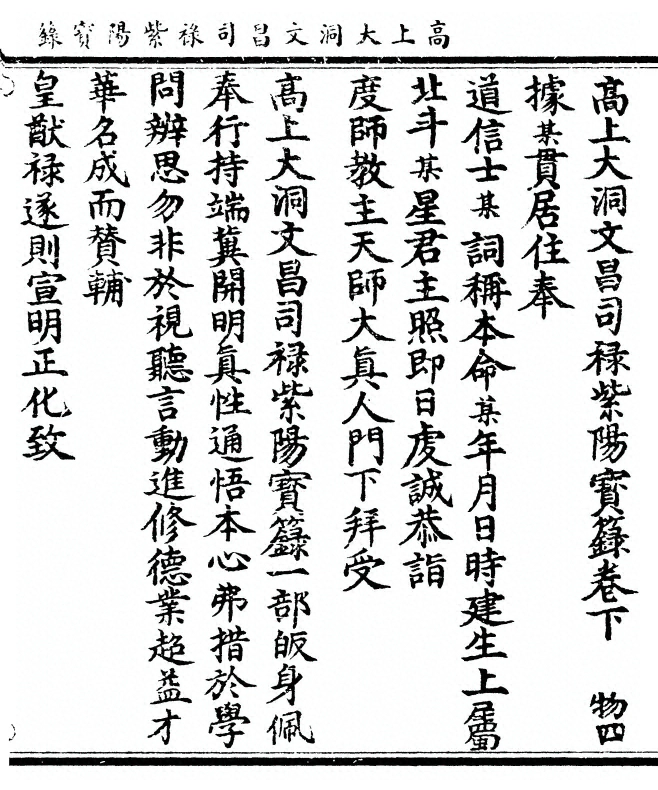 高上大洞文昌司祿紫陽寳籙
高上大洞文昌司禄紫陽寳籙卷下　物四
據某貫居住奉
道信士某詞稱本命某年月日時建生上屬
北斗某星君主照即日虔誠恭詣
度師教主天師大眞人門下拜受
高上大洞文昌司禄紫陽寳籙一部皈身佩
奉行持端冀開明眞性通悟本心弗措於學
問辨思勿非於視聽言動進修德業超益才
華名成而賛輔
皇猷禄遂則宣明正化致